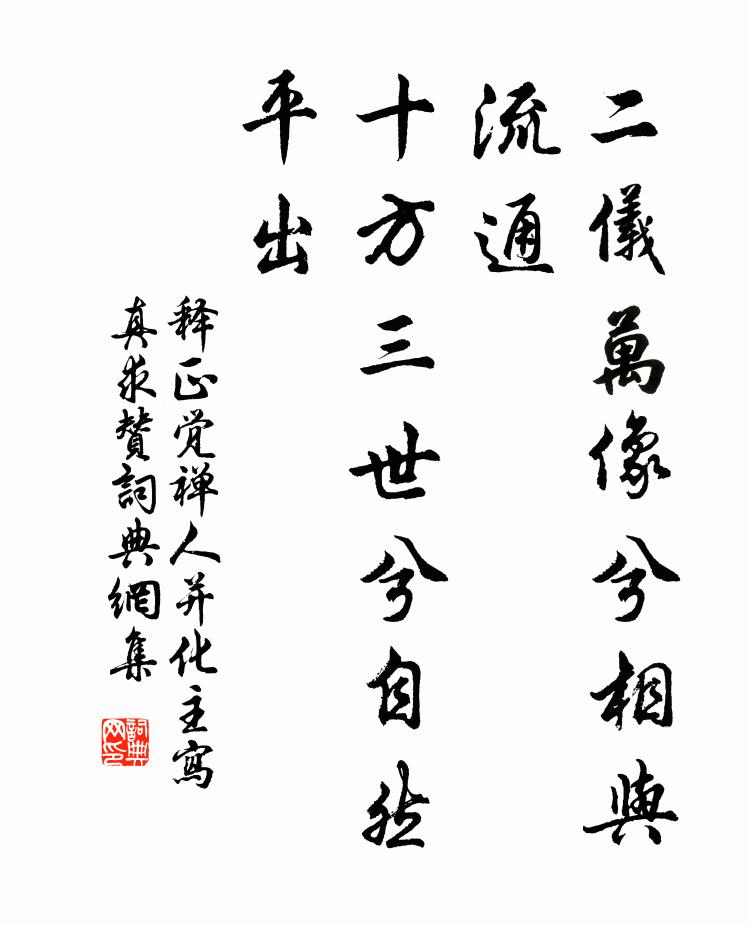 二儀萬像兮相與
流通
十方三世兮自然
平出
释正觉禅人并化主寫
真求贊詞典網集
詞典网印